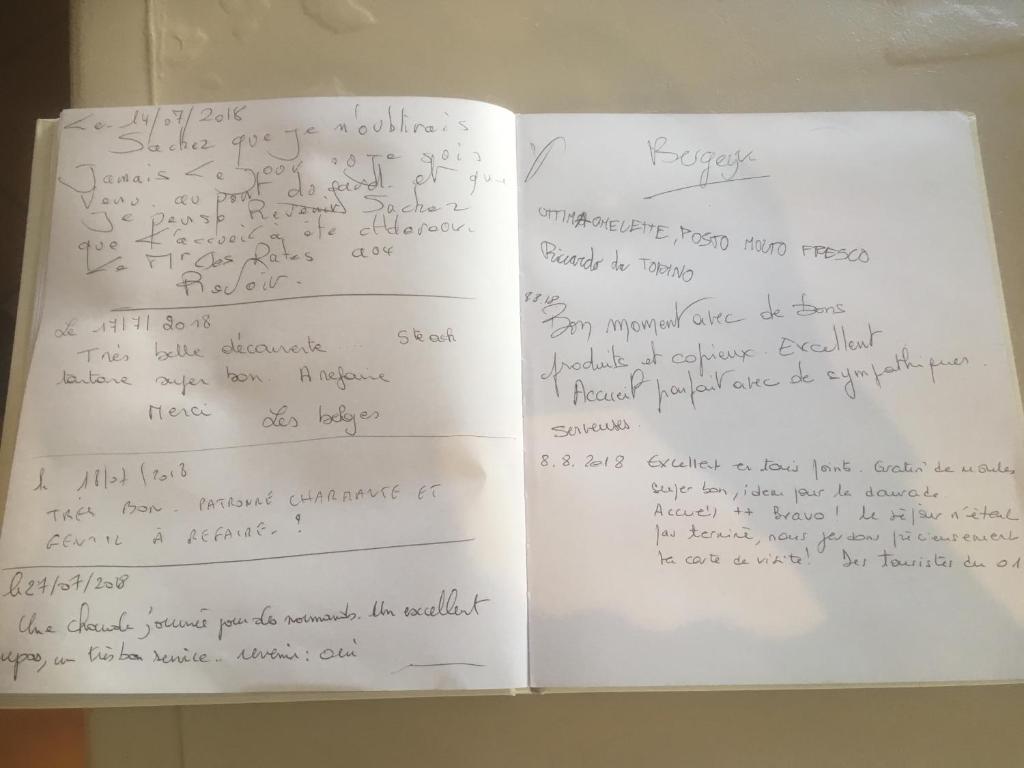 Le 14/07/2018
Sachez que je n'oublirais
Jamais Le jour où je sois
Venu au pont du gard. et que
Je pense Revenir Sachez
que L'accueil a été
Le Mr des Pates aou
Revoir.
Le 17/7/2018
Très belle découverte ... Steack
tartare super bon. A refaire
Merci Les belges
le 18/07/2018
TRÈS BON. PATRONNE CHARMANTE ET
GENTIL À REFAIRE. !
le 27/07/2018
Une chaude journée pour des normands. Un excellent
repas, un très bon service.. revenir : oui
OTTIMA OMELETTE, POSTO MOLTO FRESCO
Riccardo da TORINO
8.8.18
Bon moment avec de bons
produits et copieux. Excellent
Accueil parfait avec de sympathiques
serveuses.
8.8.2018 Excellent en tous points. Gratin de moules
super bon, idem pour la daurade
Accueil ++ Bravo ! Le séjour n'étant
pas terminé, nous gardons précieusement
la carte de visite ! Des touristes du 01